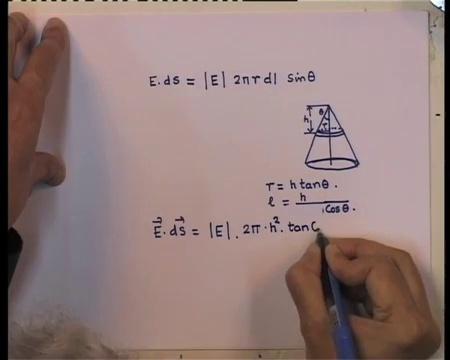 E. ds = |E| 2πr dl sinθ
h θ r
r = h tanθ.
l = h / Cosθ.
E⃗. ds⃗ = |E|. 2π · h². tan